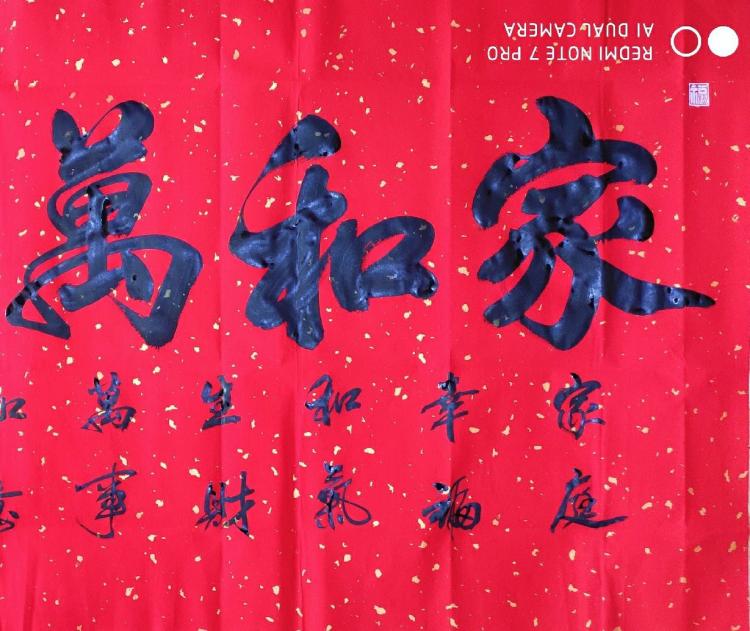 家和萬
家庭
幸福
和氣
生財
萬事
REDMI NOTE 7 PRO
AI DUAL CAMERA